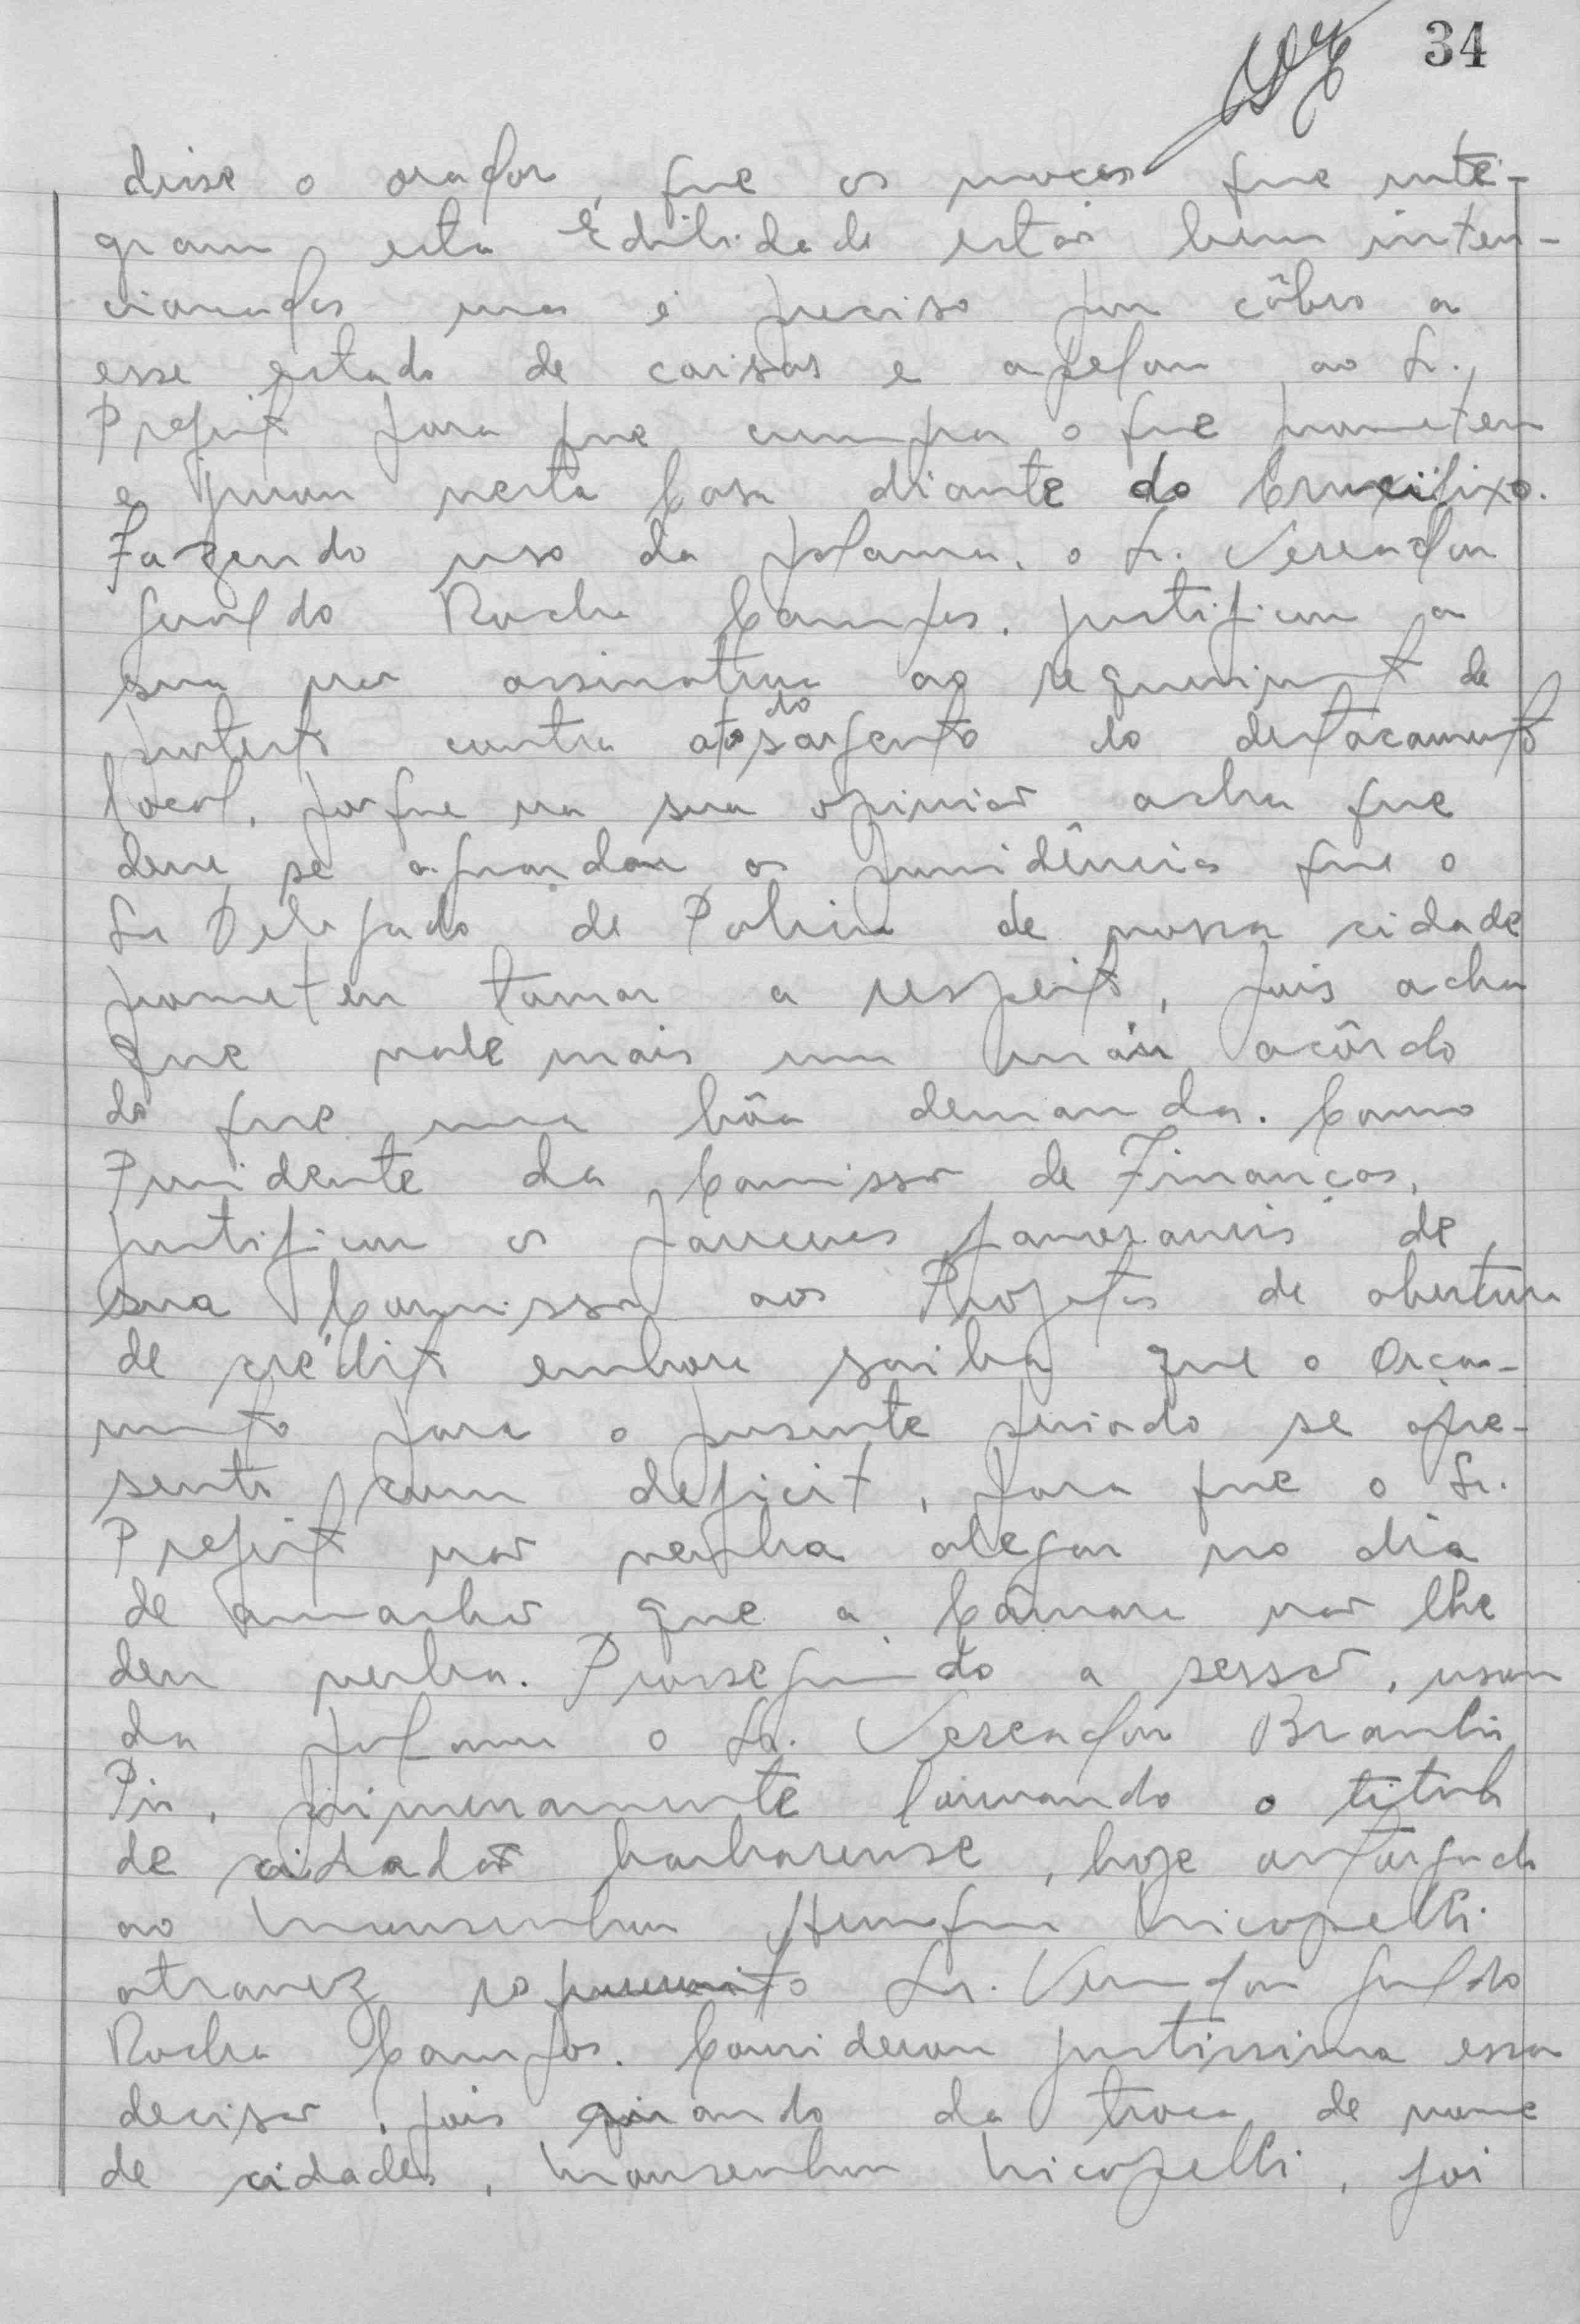 34
disse o orador, que os moços que inte-
gram esta Edilidade estão bem inten-
cionados mas é preciso por côbro a
esse estado de coisas e apelou ao Sr.
Prefeito para que cumpra o que prometeu
e jurou nesta Casa diante do Crucifixo.
Fazendo uso da palavra, o Sr. Vereador
Geraldo Rocha Campos, justificou a
sua não assinatura ao requerimento de
protesto contra ato do sargento do destacamento
local, porque na sua opinião acha que
deve se aguardar as providências que o
Sr Delegado de Policia de nossa cidade
prometeu tomar a respeito, pois acha
que vale mais um máu acôrdo
do que uma bôa demanda. Como
Presidente da Comissão de Finanças,
justificou os pareceres favoraveis de
sua Comissão aos Projetos de abertura
de crédito embora saiba que o Orça-
mento para o presente periodo se apre-
senta com deficit, para que o Sr.
Prefeito não venha alegar no dia
de amanhã que a Câmara não lhe
deu verba. Prosseguindo a sessão, usou
da palavra o Sr. Vereador Braulio
Pio, primeiramente louvando o titulo
de cidadão barbarense, hoje outorgado
ao Monsenhor Henrique Nicopelli
atravez do Sr. Vereador Geraldo
Rocha Campos. Considerou justissima essa
decisão, pois quando da troca de nome
de cidades, Monsenhor Nicopelli, foi